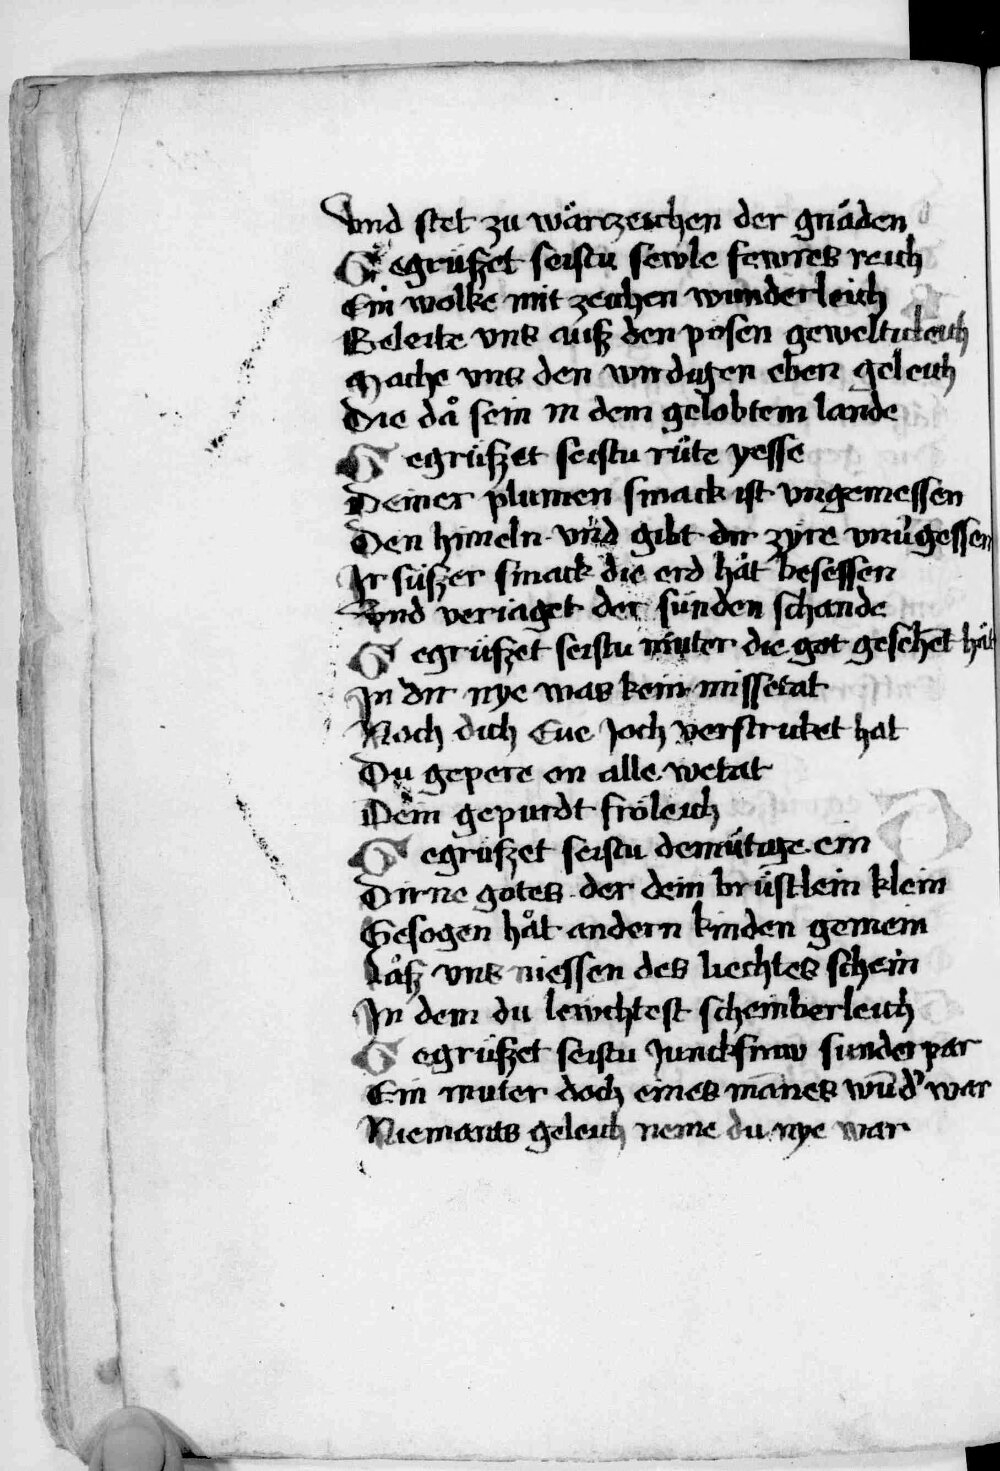 Vnd stet zu wärczeichen der gnaden
Gegrüßet seistu sewle fewres reich
Ein wolke mit zeichen wunderleich
Beleite vns auß den posen geweltichleich
Mache vns den wirdigen eben geleich
Die då sein in dem gelobtem lande
Gegrüßet seistu rüte yesse
Deiner plumen smack ist vngemessen
Den himeln vnd gibt dir zyre vnuergessen
Ir süßer smack die erd håt besessen
Vnd veriaget der sünden schande
Gegrüßet seistu muter die got gesehet hät
In dir nye was kein missetat
Noch dich Eue Joch verstricket hat
Du gepere on alle wetat
Dein gepurdt fröleich
Gegrüßet seistu demütige ein
Dirne gotes der dein brüstlein klein
Gesogen håt andern kinden gemein
Låß vns niessen des liechtes schein
In dem du lewchtest scheinberleich
Gegrüßet seistu Junckfraw sunderpar
Ein muter doch eines mānes wūd' war
Niemants geleich neme du nye war